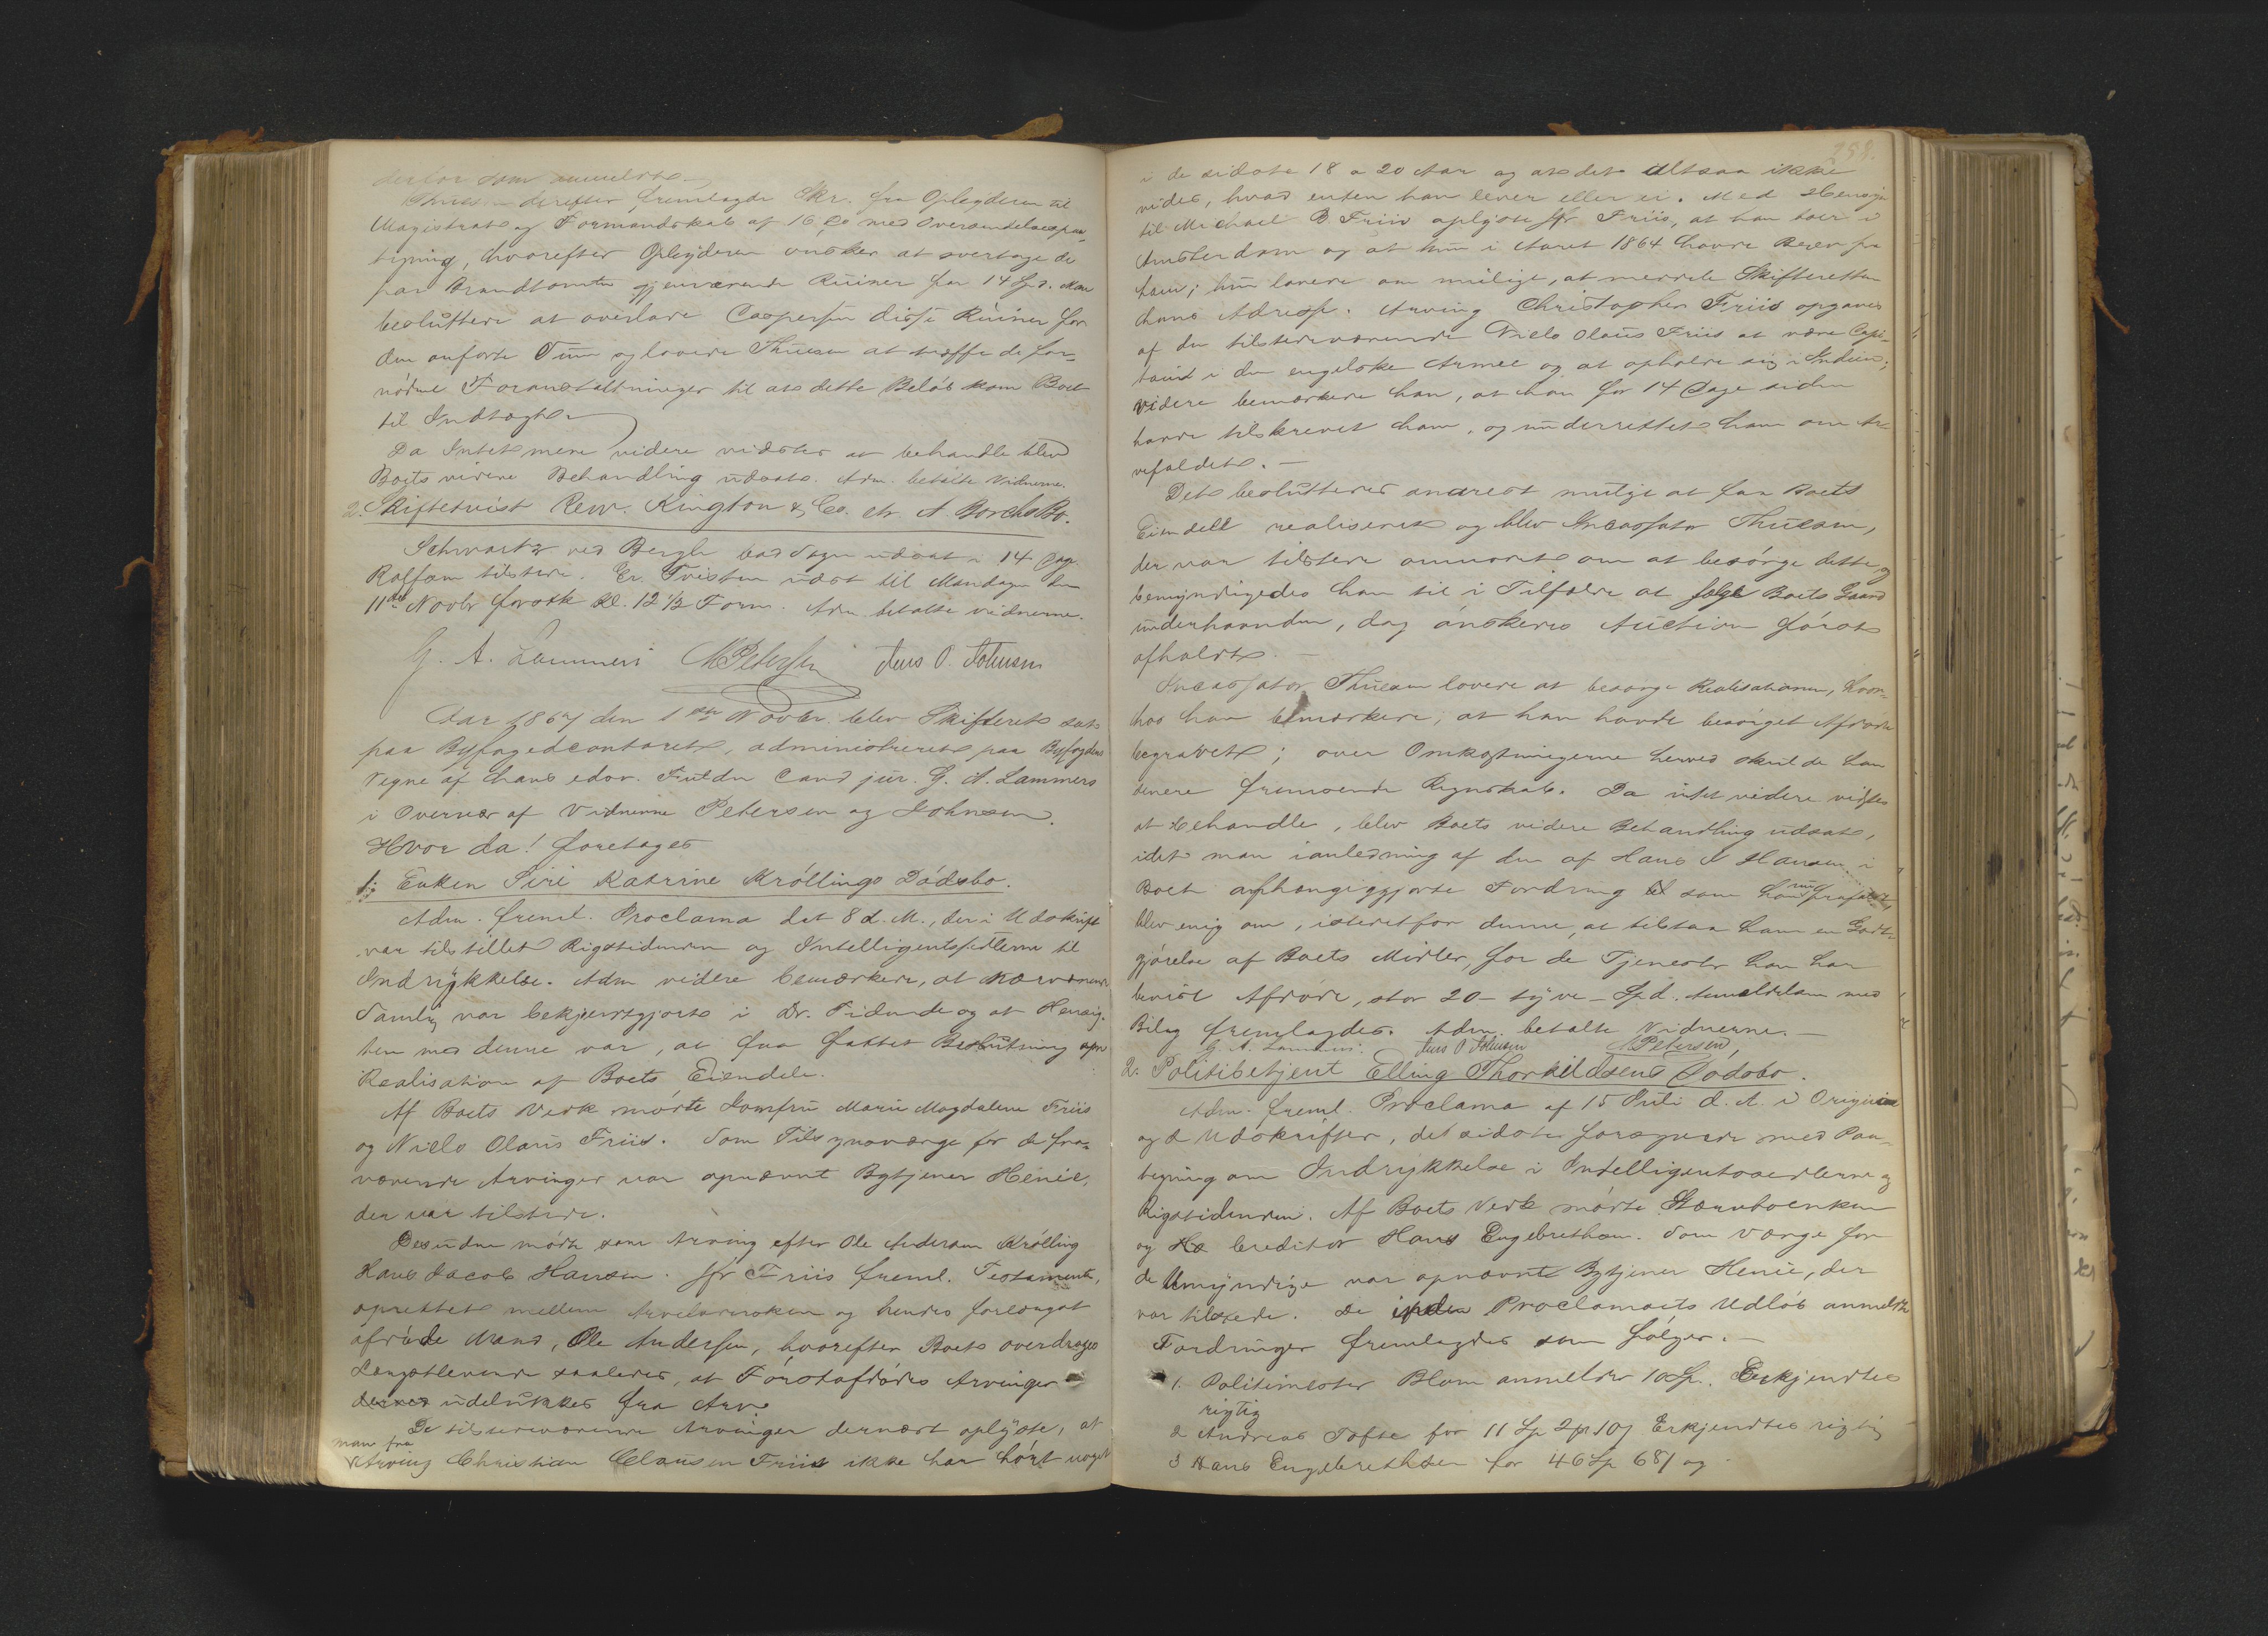 derfor som anmeldte.
Thuesen derefter fremlagde Skr. fra Oplyderen til
Magistrat og Formandskab af 16 med Oversendelsespaa-
tegning, hvorefter Oplyderen ønsker at overtage de
paa Brandtomten gjenværende Ruiner for 14 Spd. Man
besluttede at overlade Caspersen disse Ruiner for
den anførte Sum og lovede Thuesen at træffe de for-
nödne Foranstaltninger til at dette Beløb kom Boet
til Indtægt.
Da Intet mere videre vidstes at behandle blev
Boets videre Behandling udsat. Adm. betalte Vidnerne.
2. Skiftetvist Rew. Kington & Co. ctr. A. Borchs Bo.
Schwartz ved Bergh bad Sagen udsat i 14 Dage
Roffsen tilstede. Er. Tvisten udsat til Mandagen den
11te Novbr førstk. Kl. 12½ Form. Adm. betalte vidnerne.
G. A. Lammers MPetersen Jens O. Johnsen
Aar 1867 den 1ste Novbr. blev Skifteret sat
paa Byfogedcontoret, administreret paa Byfogdens
Vegne af hans edsv. Fuldm. Cand jur. G. A. Lammers
i Overvær af Vidnerne Petersen og Johnsen.
Hvor da! foretages
1; Enken Siri Katrine Kröllings Dödsbo.
Adm. freml. Proclama dat 8 d. M., der i Udskrift
var tilstillet Rigstidenden og Intelligentssedlerne til
Indrykkelse. Adm videre bemærkede, at nærværende
Samling var bekjendtgjort i Dr. Tidende og at Hensig-
ten med denne var, at faa fattet Beslutning om
Realisation af Boets Eiendele.
Af Boets Vedk. mödte Jomfru Marie Magdalene Friis
og Niels Olaus Friis. Som Tilsynsværge for de fra-
værende Arvinger var opnævnt Bytjener Henie,
der var tilstede.
Desuden mödte som Arving efter Ole Andersen Krölling
Hans Jacob Hansen. Jfr Friis freml. Testament,
oprettet mellem Arveladersken og hendes forlængst
afdöde Mand, Ole Andersen, hvorefter Boet overdrages
Længstlevende saaledes, at Förstafdödes Arvinger
derved udelukkes fra Arv.
De tilstedeværende Arvinger dernæst oplyste, at
man fra
Arving Christian Clausen Friis ikke har hört noget
299.
i de sidste 18 a 20 Aar og at det altsaa ikke
vides, hvad enten han lever eller ei. Med Hensyn
til Michael B Friis oplyste Jfr Friis, at han boer i
Amsterdam og at hun i Aaret 1864 havde Brev fra
ham; hun lovede om muligt, at meddele Skifteretten
hans Adresse. Arving Christopher Friis opgaves
af den tilstedeværende Niels Olaus Friis at være Capi-
tain i den engelske Armee og at opholde sig i Indien;
videre bemærkede han, at han for 14 Dage siden
havde tilskrevet ham, og underrettet ham om Ar-
vefaldet.
Det besluttedes snarest muligt at faa Boets
Eiendele realiseret og blev Incassator Thuesen,
der var tilstede anmodet om at besörge dette, og
bemyndigedes han til i Tilfælde at sælge Boets Gaard
underhaanden, dog önskedes Auction först
afholdt.
Incassator Thuesen lovede at besørge Realisationen, hvor-
hos han bemærkede, at han havde besörget Afdöde
begravet; over Omkostningerne herved skulde han
senere fremsende Regnskab. Da intet videre vidstes
at behandle, blev Boets videre Behandling udsat,
idet man ianledning af den af Hans J Hansen i
Boet anhængiggjorte Fordring som han
blev enig om, istedetfor denne, at tilstaa ham en Godt-
gjörelse af Boets Midler, for de Tjenester han har
bevist Afdöde, stor 20 - tyve - Spd. Anmeldelsen med
Bilag fremlagdes. Adm. betalte Vidnerne.
G. A. Lammers. Jens O Johnsen MPetersen,
2. Politibetjent Elling Thorkildsens Dödsbo.
Adm. freml. Proclama af 15 Juli d. A. i Original
og 2 Udskrifter, det sidste forsynede med Paa-
tegning om Indrykkelse i Intelligentssedlerne og
Rigstidenden. Af Boets Vedk mödte Stervboenken
og Creditor Hans Engebrethsen. Som Værge for
de Umyndige var opnævnt Bytjener Henie, der
var tilstede. De inden Proclamaets Udlöb anmeldte
Fordringer fremlagdes som fölger.
1. Politimester Blom anmelder 10 Sp. Erkjendtes
rigtig
2 Andreas Tofte for 11 Sp 2 10 Erkjendtes rigtig
3 Hans Engebrethsen for 46 Sp 68 og